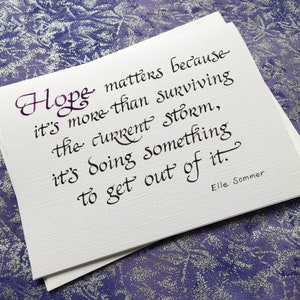 Hope matters because
it's more than surviving
the current storm,
it's doing something
to get out of it.
Elle Sommer